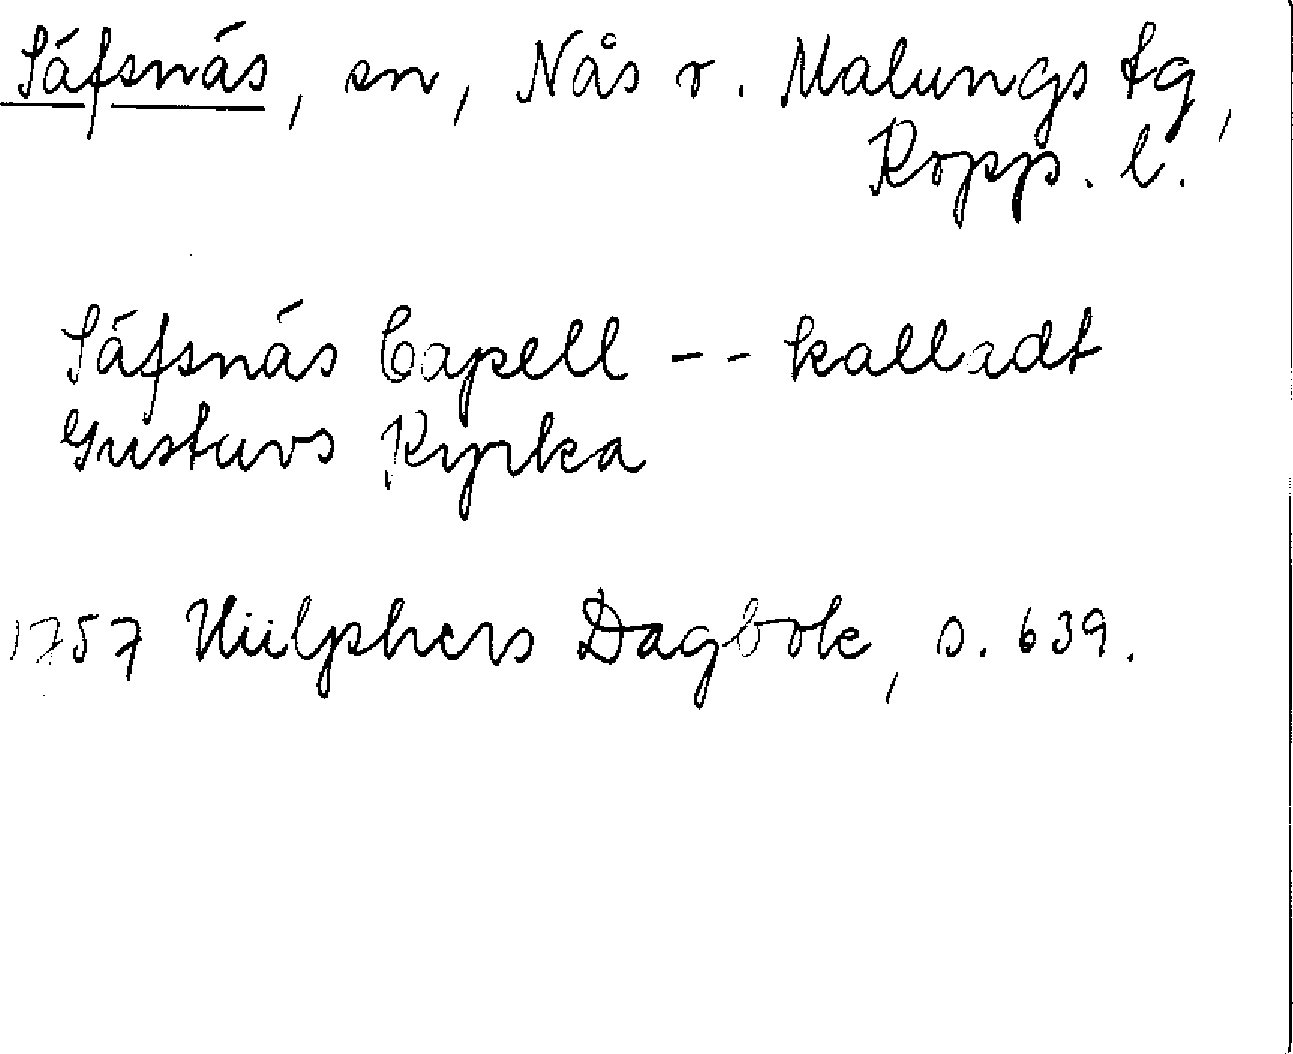 Säfsnäs, sn, Nås o. Malungs tg,
Kopp. l.
Säfsnäs Capell -- kalladt
Gustavs Kyrka
1757 Hülphers Dagbok, s. 639.